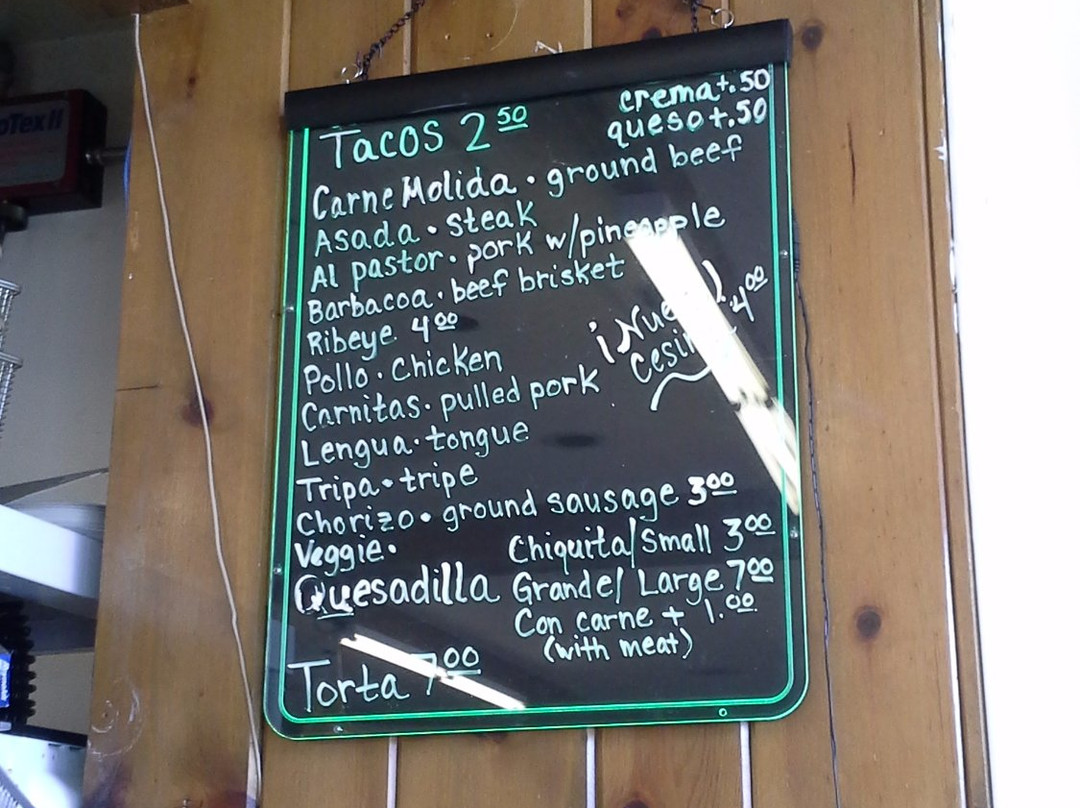 Tacos 2 50
crema +.50
queso +.50
Carne Molida · ground beef
Asada · steak
Al pastor · pork w/pineapple
Barbacoa · beef brisket
Ribeye 4 00
Pollo · Chicken
Carnitas · pulled pork
Lengua · tongue
Tripa · tripe
Chorizo · ground sausage 3 00
Veggie ·
4 00
Quesadilla
Chiquita/Small 3 00
Grande/Large 7 00
Con carne + 1.00
(with meat)
Torta 7 00